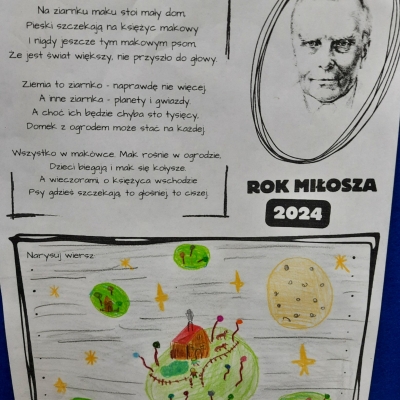 Na ziarnku maku stoi mały dom,
Pieski szczekają na księżyc makowy
I nigdy jeszcze tym makowym psom,
Że jest świat większy, nie przyszło do głowy.
Ziemia to ziarnko - naprawdę nie więcej,
A inne ziarnka - planety i gwiazdy.
A choć ich będzie chyba sto tysięcy,
Domek z ogrodem może stać na każdej.
Wszystko w makówce. Mak rośnie w ogrodzie,
Dzieci biegają i mak się kołysze.
A wieczorami, o księżyca wschodzie
Psy gdzieś szczekają, to głośniej, to ciszej.
ROK MIŁOSZA
2024
Narysuj wiersz: